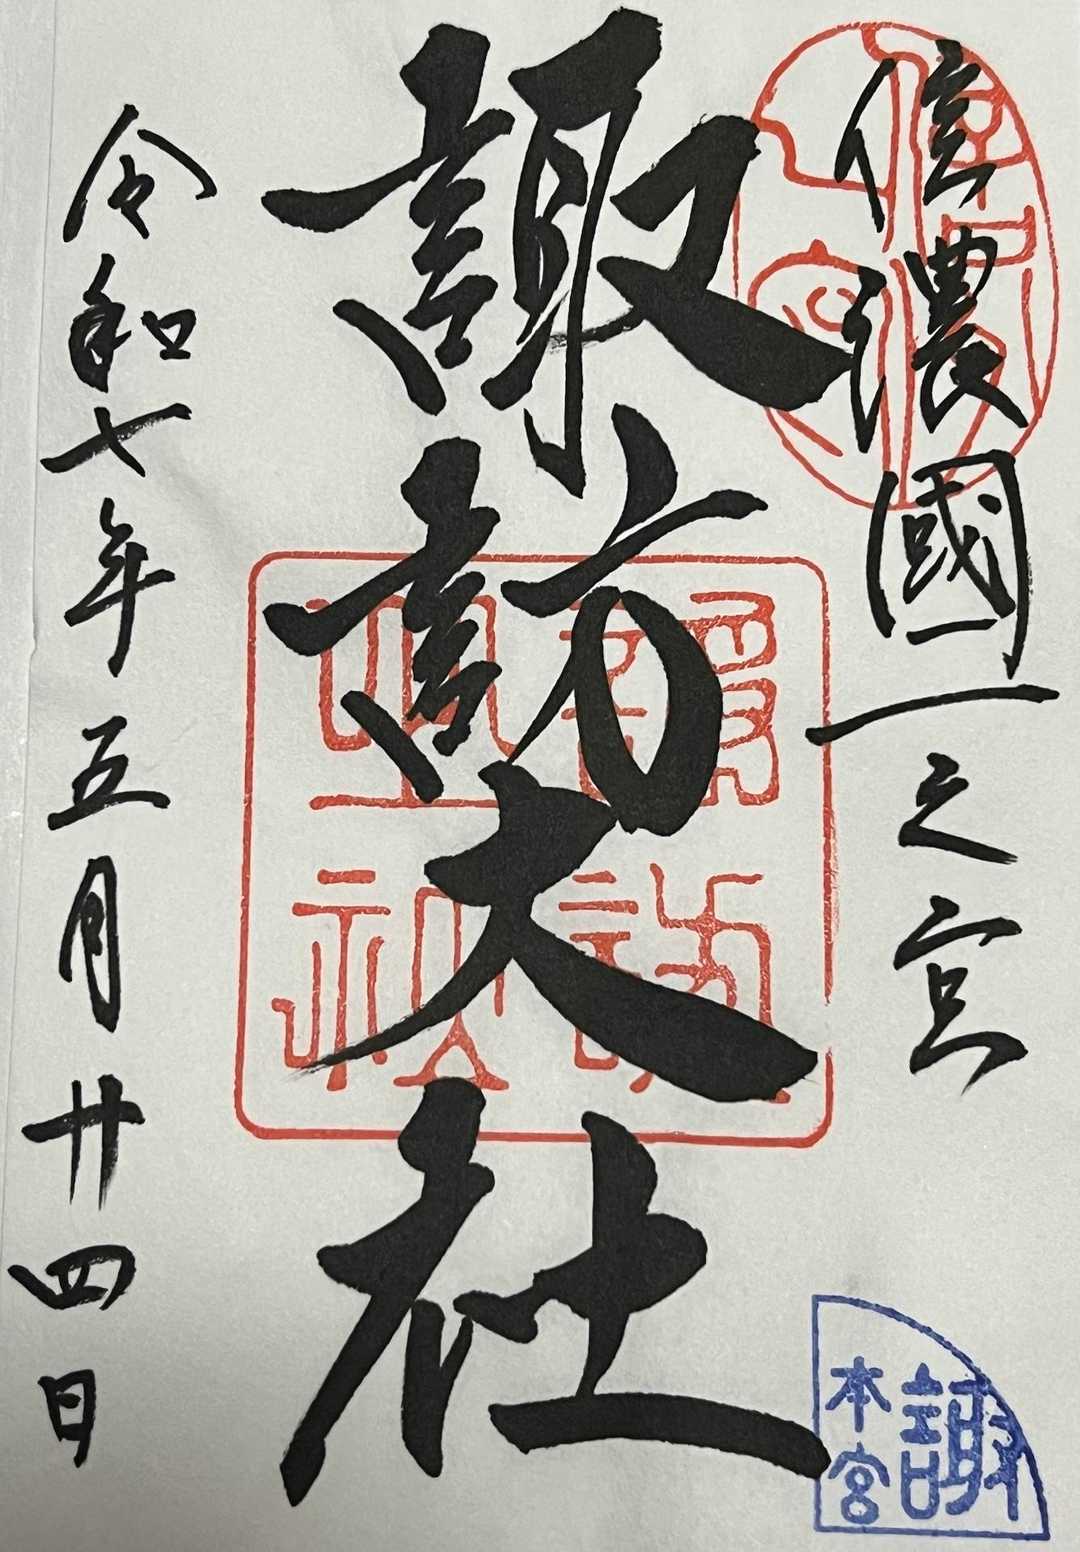 信濃國一之宮
諏訪大社
令和七年五月廿四日
本宮